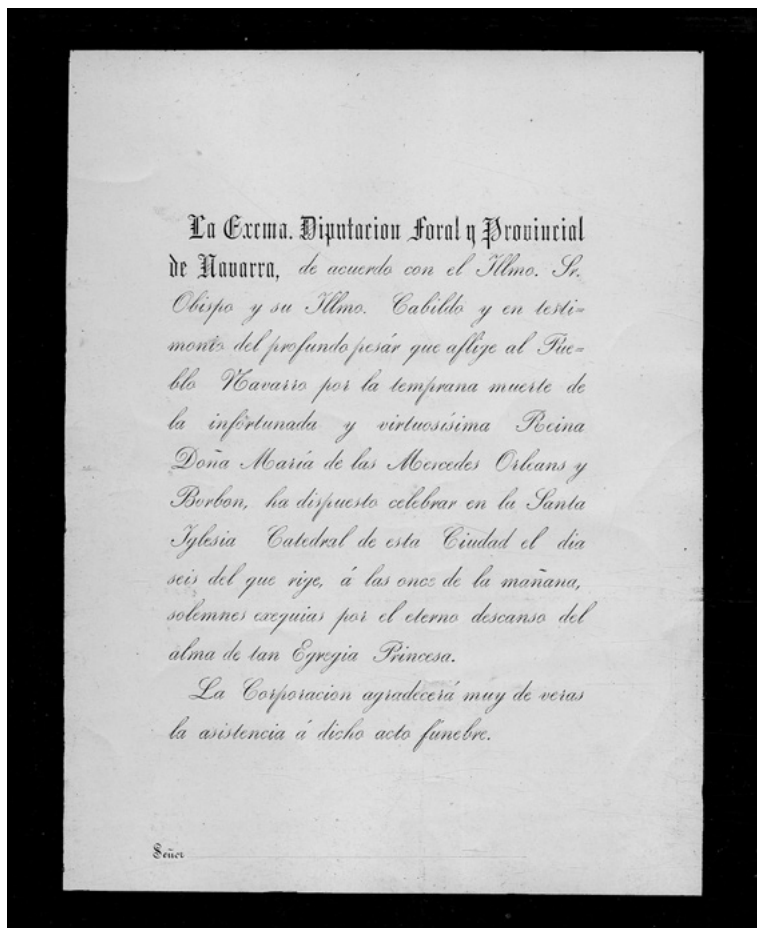 La Excma. Diputacion Foral y Provincial
de Navarra, de acuerdo con el Illmo. Sr.
Obispo y su Illmo. Cabildo y en testi=
monio del profundo pesár que aflige al Pue=
blo Navarro por la temprana muerte de
la infortunada y virtuosísima Reina
Doña María de las Mercedes Orleans y
Borbon, ha dispuesto celebrar en la Santa
Iglesia Catedral de esta Ciudad el dia
seis del que rige, á las once de la mañana,
solemnes exequias por el eterno descanso del
alma de tan Egregia Princesa.
La Corporacion agradecerá muy de veras
la asistencia á dicho acto fúnebre.
Señor